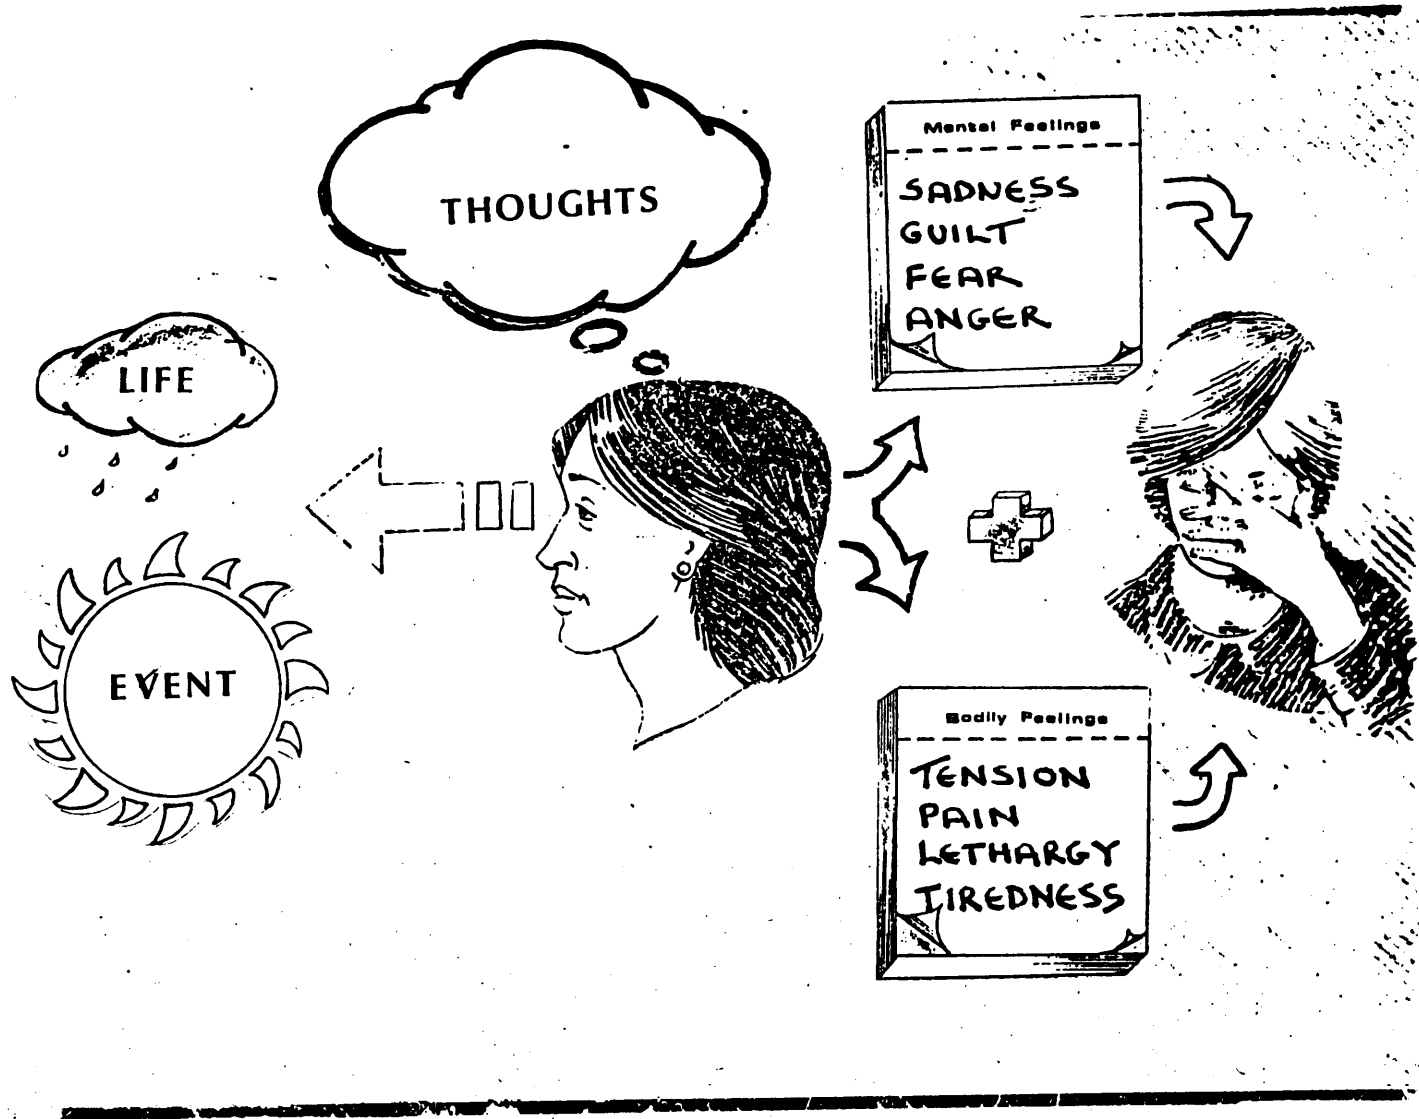 THOUGHTS
LIFE
EVENT
Mental Feelings
SADNESS
GUILT
FEAR
ANGER
Bodily Feelings
TENSION
PAIN
LETHARGY
TIREDNESS